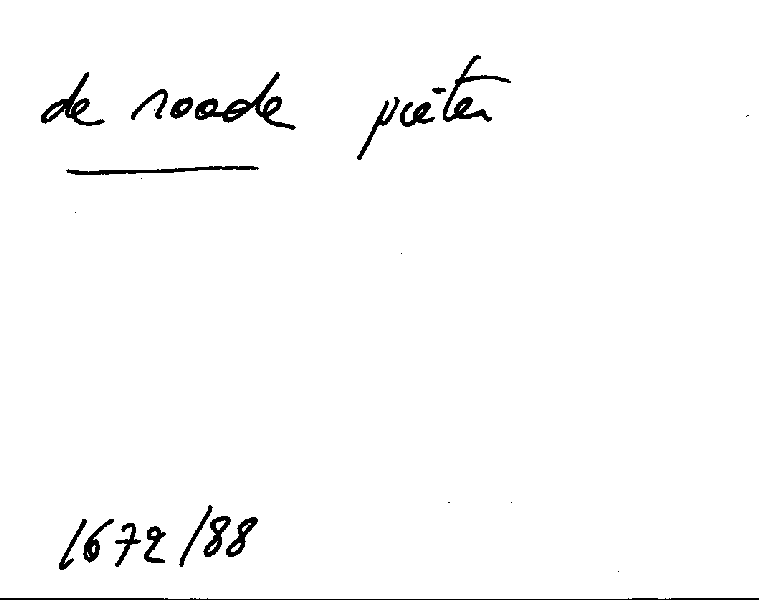 de roode pieter
1672/88